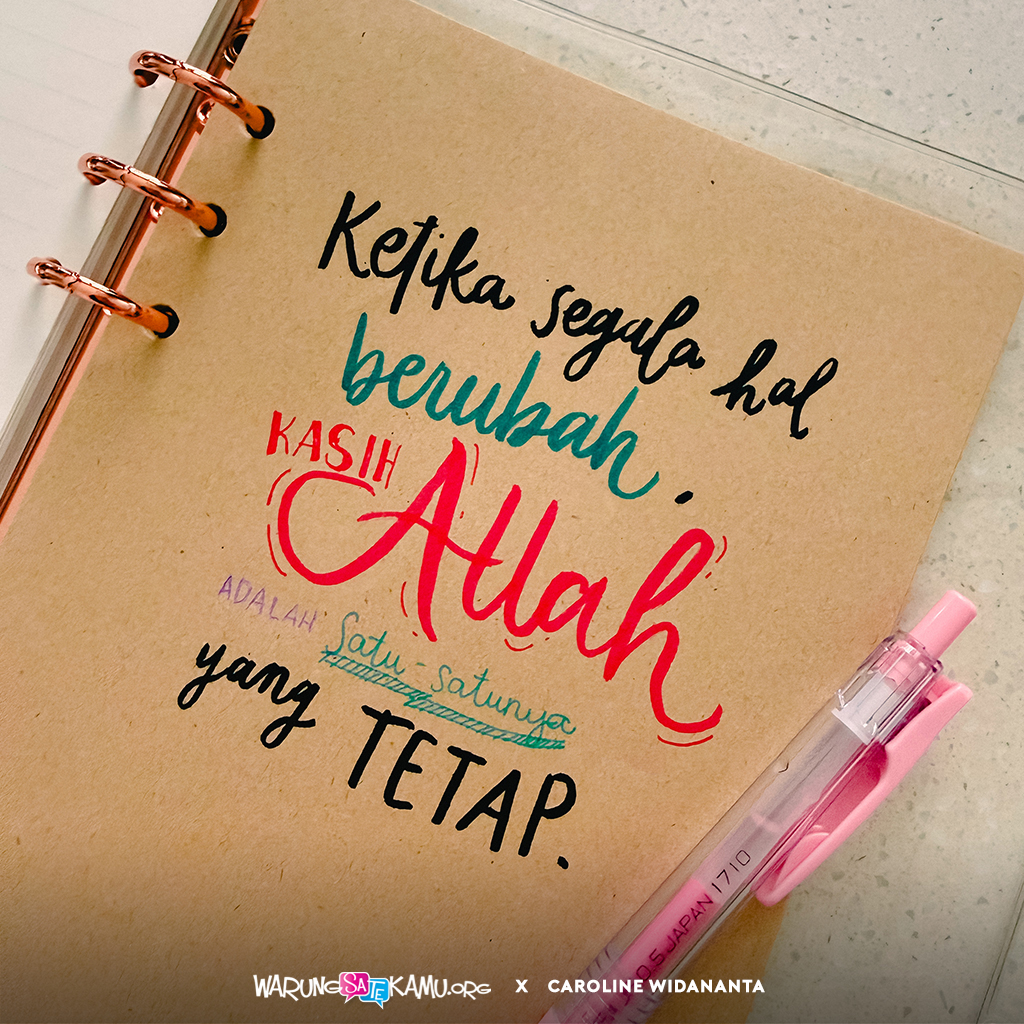 Ketika segala hal
berubah.
KASIH
Allah
ADALAH satu-satunya
yang TETAP.
0.5 JAPAN 1710
WARUNGSATEKAMU.ORG X CAROLINE WIDANANTA